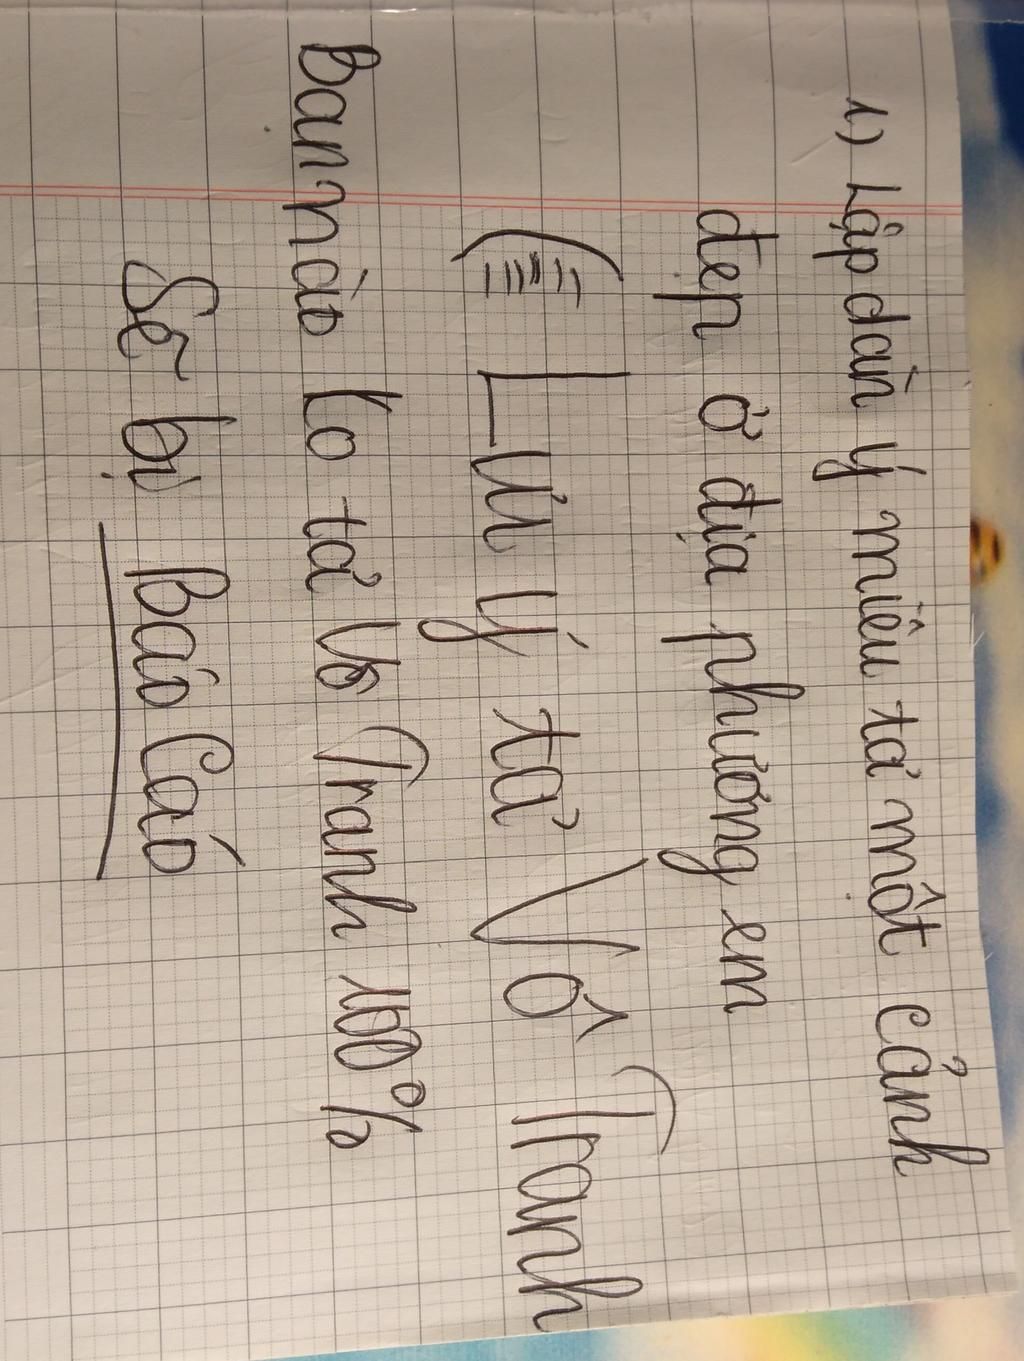 1) Lập dàn ý miêu tả một cảnh
đẹp ở địa phương em
Lưu ý tả Vô Tranh
Bạn nào ko tả Vô Tranh 100%
Sẽ bị Báo Cáo